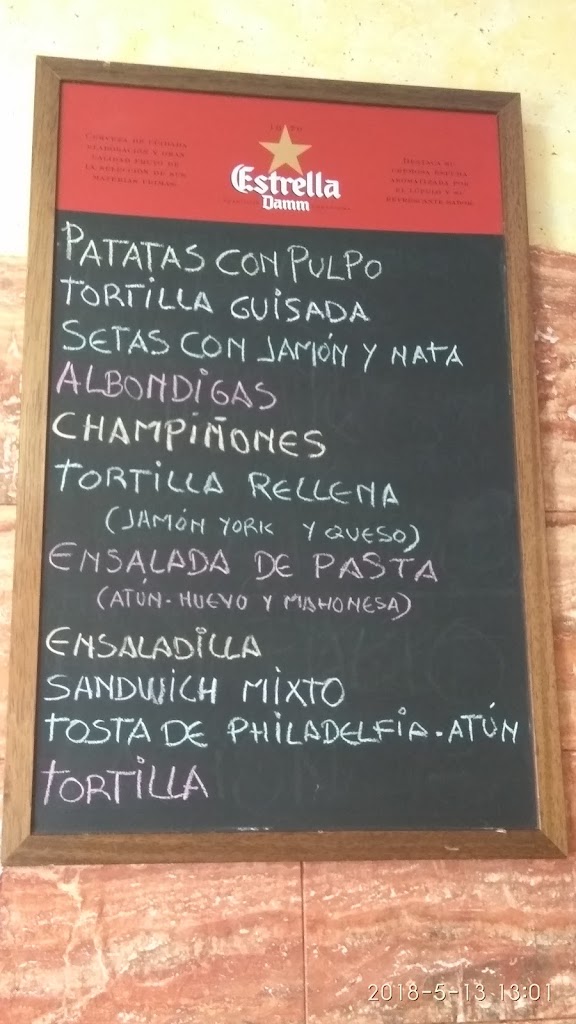 1876
CERVEZA DE CUIDADA
ELABORACIÓN Y GRAN
CALIDAD FRUTO DE
LA SELECCIÓN DE SUS
MATERIAS PRIMAS.
Estrella
Damm
DESTACA SU
CREMOSA ESPUMA
AROMATIZADA POR
EL LÚPULO Y SU
REFRESCANTE SABOR.
PATATAS CON PULPO
TORTILLA GUISADA
SETAS CON JAMÓN Y NATA
ALBONDIGAS
CHAMPIÑONES
TORTILLA RELLENA
(JAMÓN YORK Y QUESO)
ENSALADA DE PASTA
(ATÚN-HUEVO Y MAHONESA)
ENSALADILLA
SANDWICH MIXTO
TOSTA DE PHILADELFIA-ATÚN
TORTILLA
2018-5-13 13:01